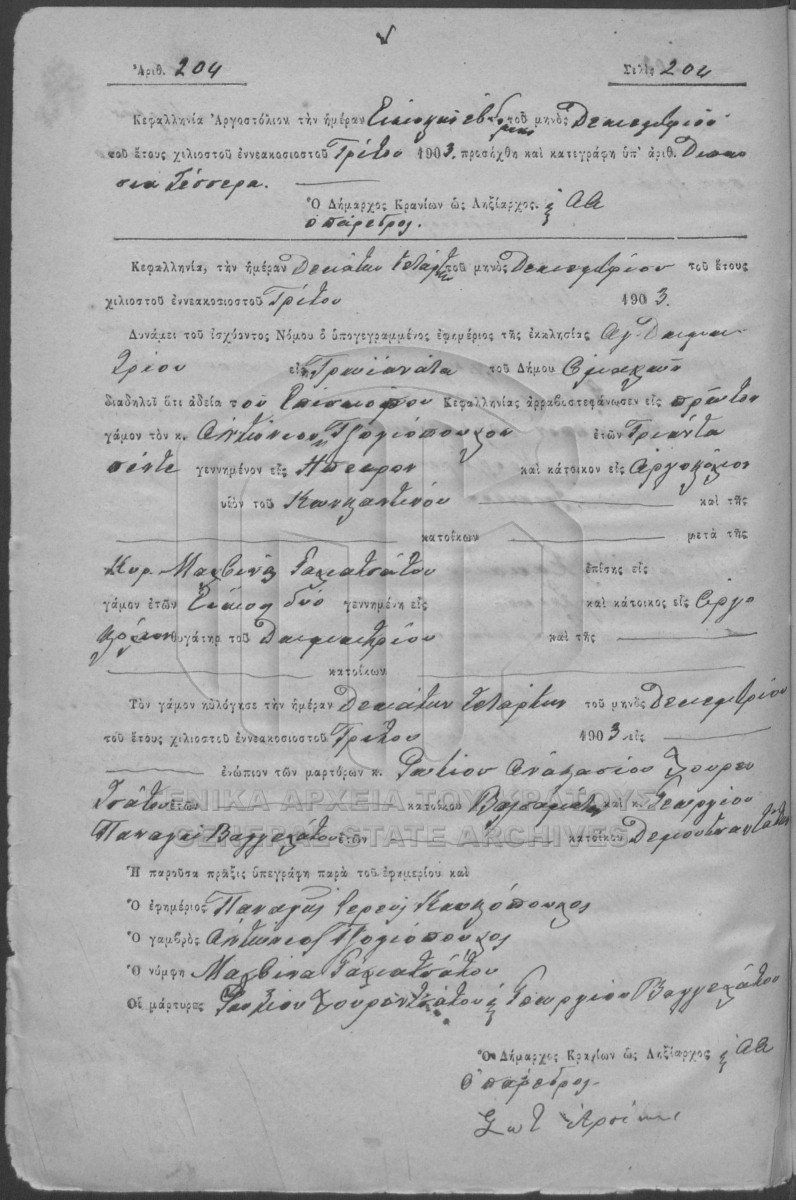 Ἀριθ. 204 Σελὶς 204
Κεφαλληνία Ἀργοστόλιον τὴν ἡμέραν Εἰκοστὴν ἑβδόμην τοῦ μηνὸς Δεκεμβρίου
τοῦ ἔτους χιλιοστοῦ ἐννεακοσιοστοῦ Τρίτου 1903. προσήχθη καὶ κατεγράφη ὑπ' ἀριθ. Διακο
σια Τέσσερα.
Ὁ Δήμαρχος Κρανίων ὡς Ληξίαρχος. ΑΑ
ὁ πάρεδρος.
Κεφαλληνία, τὴν ἡμέραν Δεκάτην τετάρτην τοῦ μηνὸς Δεκεμβρίου τοῦ ἔτους
χιλιοστοῦ ἐννεακοσιοστοῦ Τρίτου 1903.
Δυνάμει τοῦ ἰσχύοντος Νόμου ὁ ὑπογεγραμμένος ἐφημέριος τῆς ἐκκλησίας Ἁγ. Δημη
τρίου εἰς Τρωϊανάτα τοῦ Δήμου Ὁμαλῶν
διαδηλοῖ ὅτι ἀδεία τοῦ Ἐπισκόπου Κεφαλληνίας ἀρραβοστεφάνωσεν εἰς πρῶτον
γάμον τὸν κ. Ἀντώνιον Τζολιόπουλον ἐτῶν Τριάντα
πέντε γεννημένον εἰς Ἤπειρον καὶ κάτοικον εἰς Ἀργοστόλιον
υἱὸν τοῦ Κωνσταντίνου καὶ τῆς
κατοίκων μετὰ τῆς
Κυρ. Μαλβίνας Γαλιατσάτου ἐπίσης εἰς
γάμον ἐτῶν Εἴκοσι δύο γεννημένη εἰς καὶ κάτοικος εἰς Ἀργο
στόλιον θυγάτηρ τοῦ Δημητρίου καὶ τῆς
κατοίκων
Τὸν γάμον ηὐλόγησε τὴν ἡμέραν Δεκάτην τετάρτην τοῦ μηνὸς Δεκεμβρίου
τοῦ ἔτους χιλιοστοῦ ἐννεακοσιοστοῦ Τρίτου 1903 εἰς
ἐνώπιον τῶν μαρτύρων κ. Φωτίου Ἀναστασίου Τζουρεν
Τσάτου ἐτῶν κατοίκου Βαλσαμάτα καὶ κ. Γεωργίου
Παναγῆ Βαγγελάτου ἐτῶν κατοίκου Δεμουτσαντάτα
ΓΕΝΙΚΑ ΑΡΧΕΙΑ ΤΟΥ ΚΡΑΤΟΥΣ
GENERAL STATE ARCHIVES
Ἡ παροῦσα πρᾶξις ὑπεγράφη παρὰ τοῦ ἐφημερίου καὶ
Ὁ ἐφημέριος Παναγῆς Ἱερεὺς
Ὁ γαμβρὸς Ἀντώνιος Τζολιόπουλος
Ὁ νύμφη Μαλβίνα Γαλιατσάτου
Οἱ μάρτυρες Φωτίου Τζουρεντσάτου Γεωργίου Βαγγελάτου
Ὁ Δήμαρχος Κρανίων ὡς Ληξίαρχος ΑΑ
Ὁ πάρεδρος.